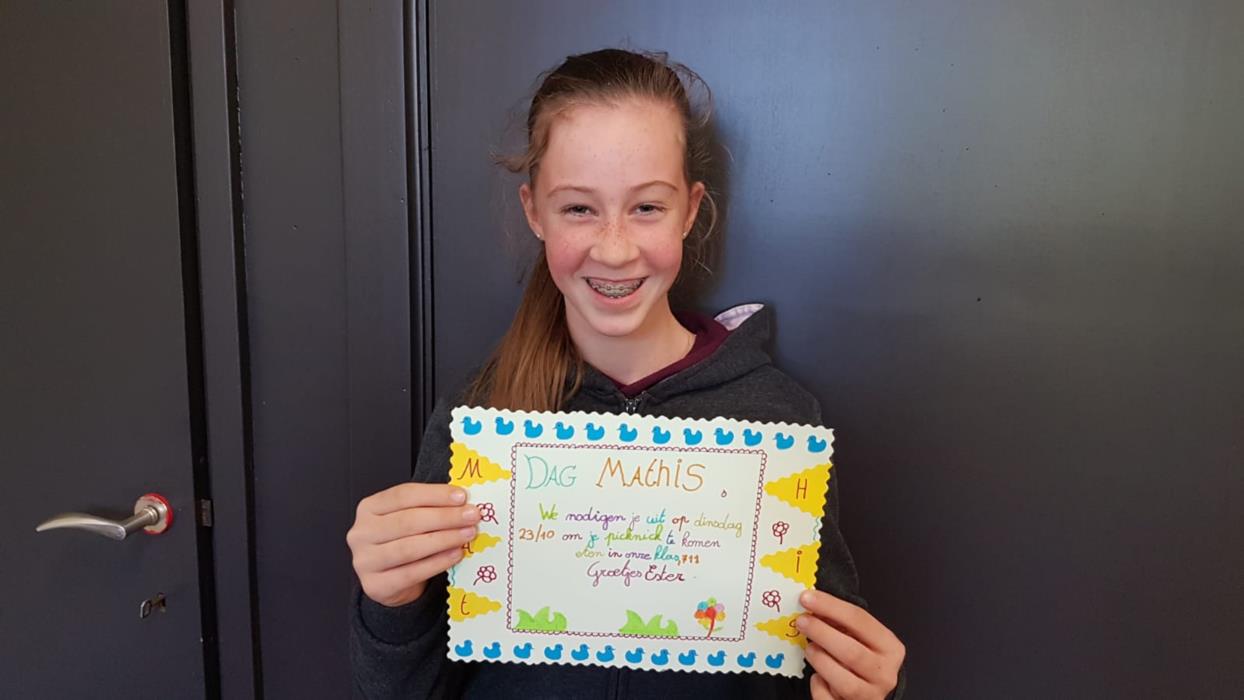 DAG MAthis
We nodigen je uit op dinsdag
23/10 om je picknick te komen
eten in onze klas, 711
Groetjes Ester
M
A
t
H
i
S